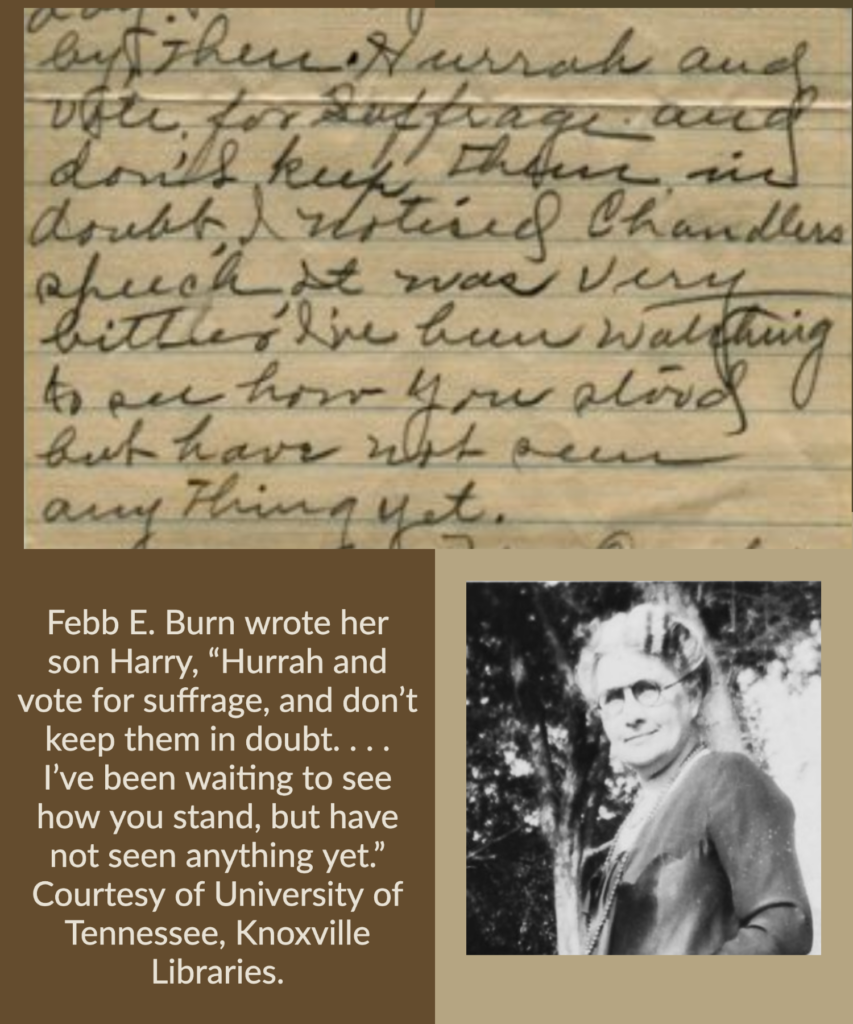 day.
by then. Hurrah and
vote for Suffrage and
don't keep them in
doubt, I notised Chandlers
speech, it was very
bitter. I've been watching
to see how you stood
but have not seen
any thing yet.
Febb E. Burn wrote her
son Harry, “Hurrah and
vote for suffrage, and don’t
keep them in doubt. . . .
I’ve been waiting to see
how you stand, but have
not seen anything yet.”
Courtesy of University of
Tennessee, Knoxville
Libraries.